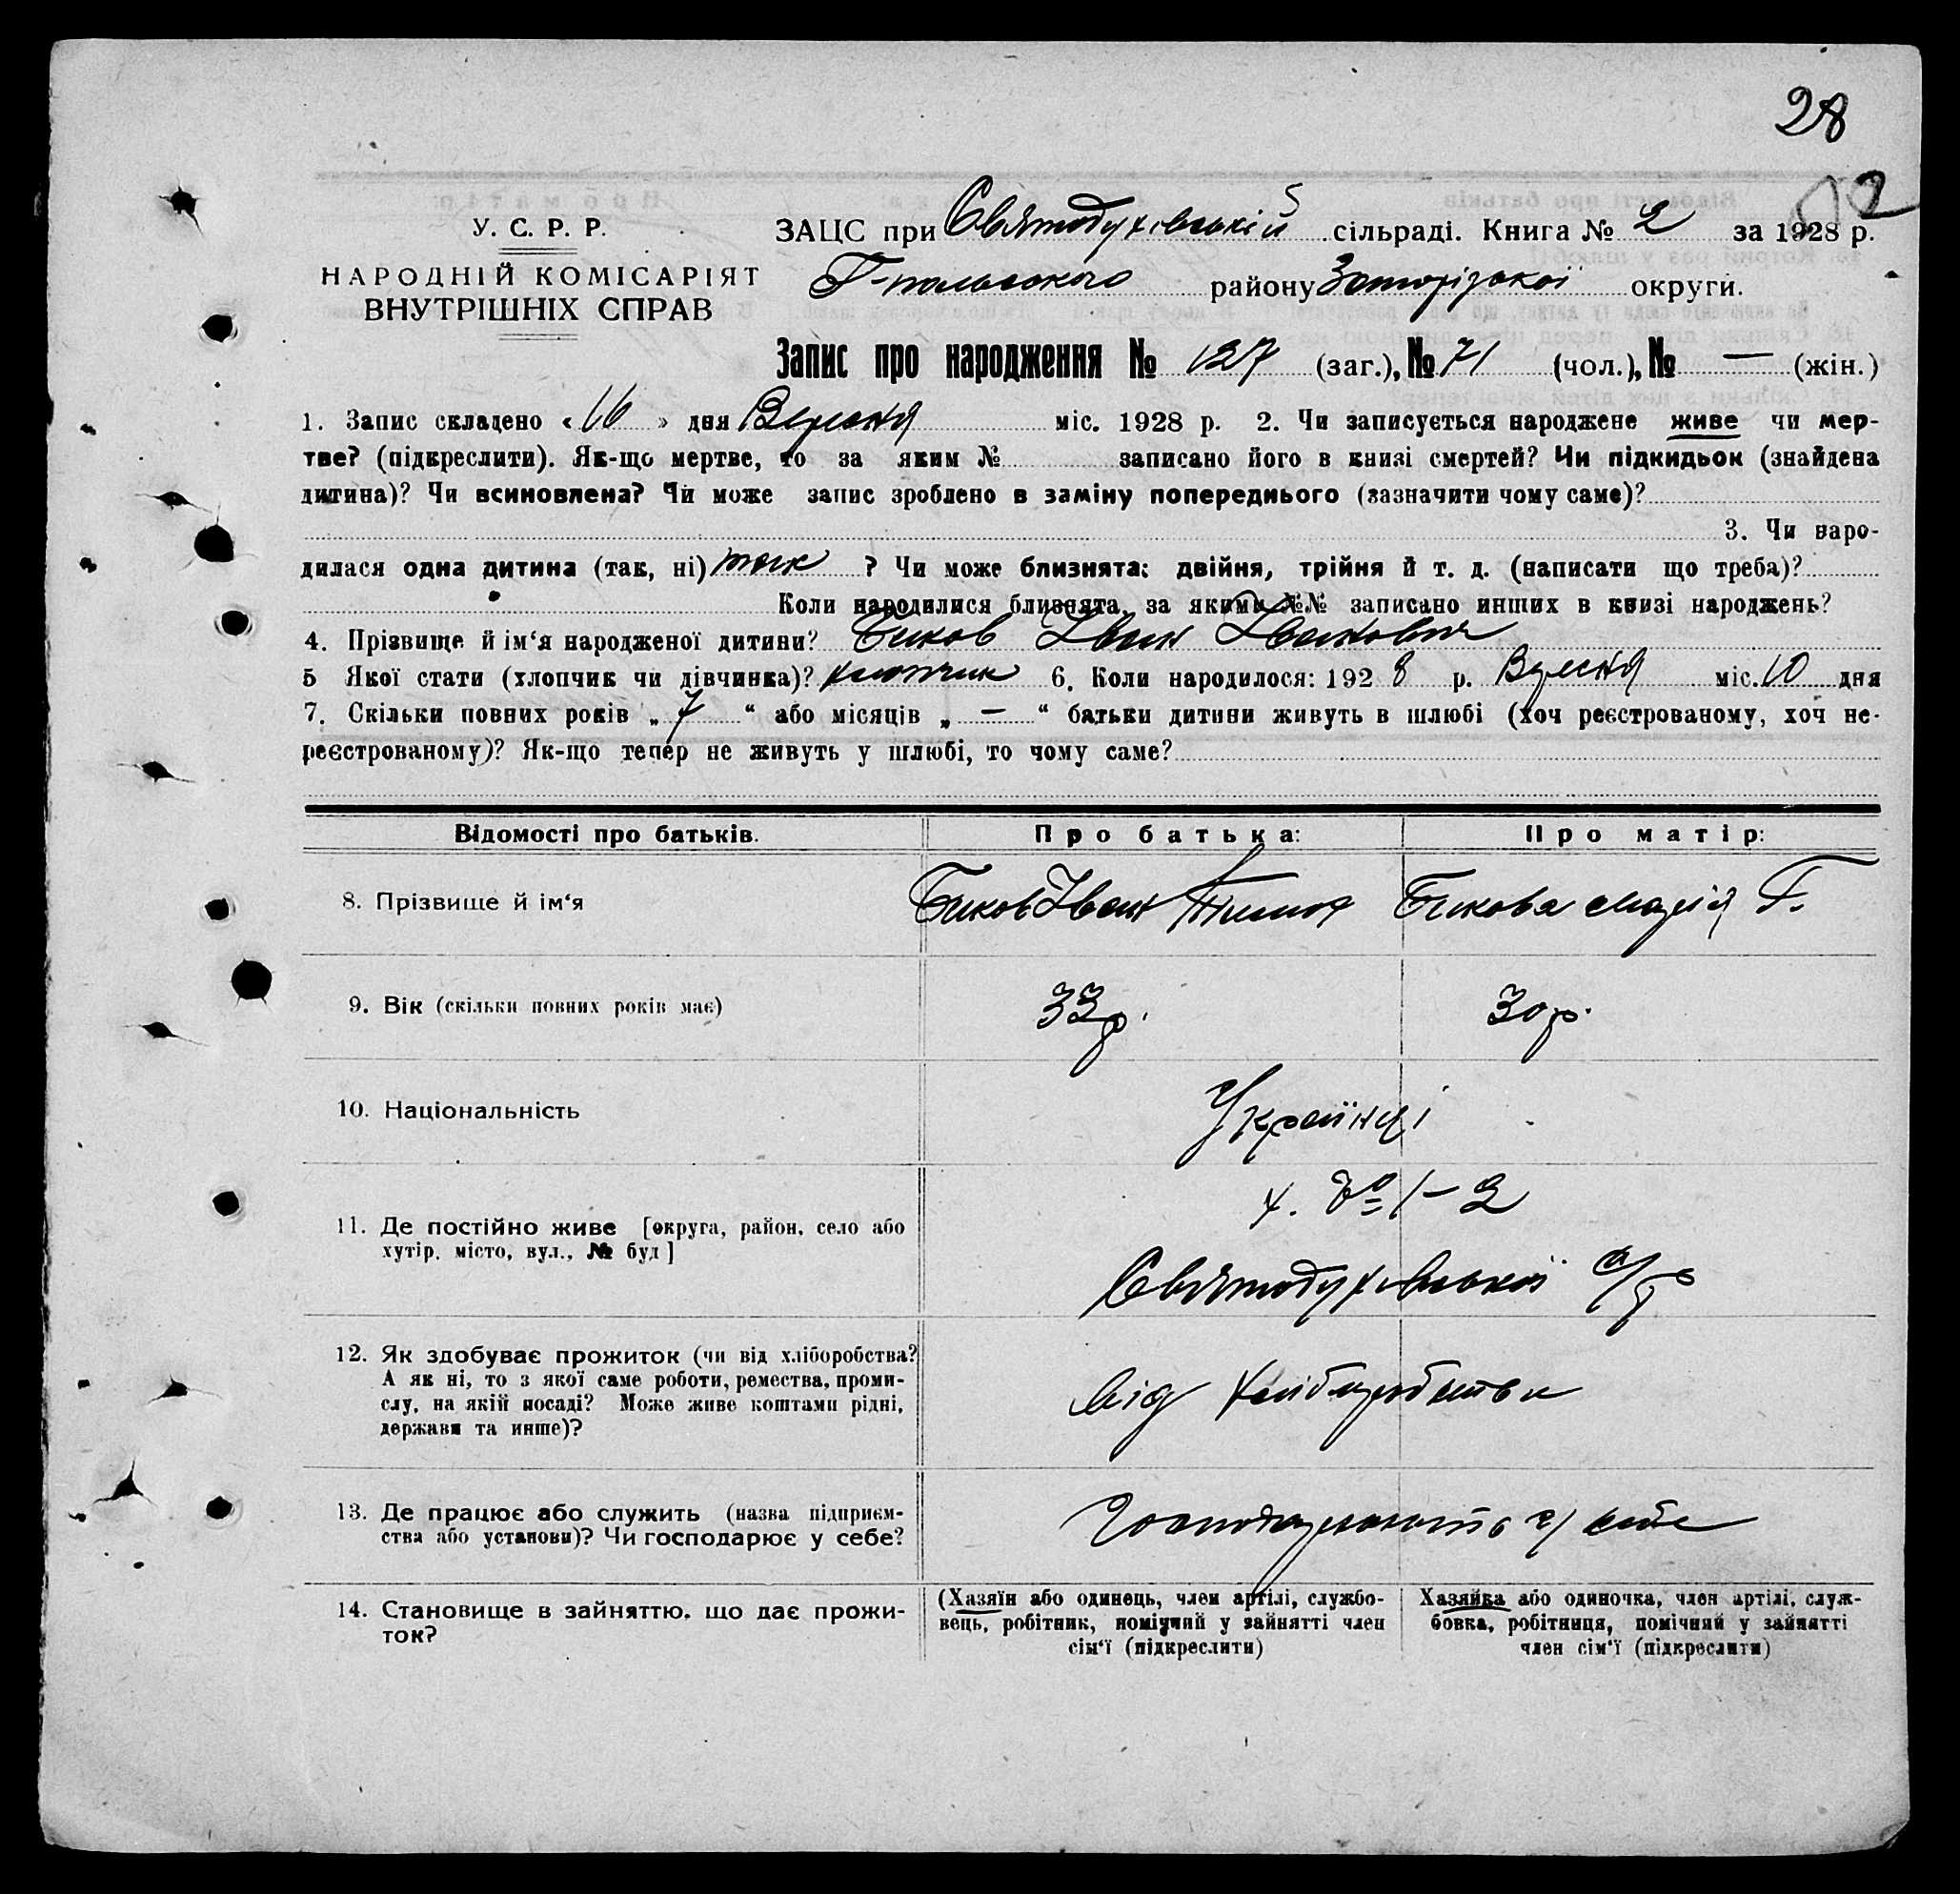 28
2
У. С. Р. Р.
НАРОДНІЙ КОМІСАРІЯТ
ВНУТРІШНІХ СПРАВ
ЗАЦС при Святодухівській сільраді. Книга № 2 за 1928 р.
Г-польського району Запорізької округи.
Запис про народження № 127 (заг.), № 71 (чол.), № — (жін.)
1. Запис складено « 16 » дня Вересня міс. 1928 р. 2. Чи записується народжене живе чи мер-
тве? (підкреслити). Як-що мертве, то за яким № записано його в книзі смертей? Чи підкидьок (знайдена
дитина)? Чи всиновлена? Чи може запис зроблено в заміну попереднього (зазначити чому саме)?
3. Чи наро-
дилася одна дитина (так, ні) так ? Чи може близнята: двійня, трійня й т. д. (написати що треба)?
Коли народилися близнята, за якими №№ записано инших в книзі народжень?
4. Прізвище й ім‘я народженої дитини? Биков Іван Іванович
5 Якої стати (хлопчик чи дівчинка)? хлопчик 6. Коли народилося: 1928 р. Вересня міс. 10 дня
7. Скільки повних років „ 7 “ або місяців „ — “ батьки дитини живуть в шлюбі (хоч реєстрованому, хоч не-
реєстрованому)? Як-що тепер не живуть у шлюбі, то чому саме?
Відомості про батьків. Про батька: Про матір:
8. Прізвище й ім‘я Биков Іван Тимоф Бикова Марія Г.
9. Вік (скільки повних років має) 33р. 30р.
10. Національність Українці
х. № 1–2
11. Де постійно живе [округа, район, село або
хутір, місто, вул., № буд]
Святодухівської с/р
12. Як здобуває прожиток (чи від хліборобства?
А як ні, то з якої саме роботи, ремества, проми-
слу, на якій посаді? Може живе коштами рідні,
держави та инше)?
Від хліборобства
13. Де працює або служить (назва підприєм-
ства або установи)? Чи господарює у себе?
Господарюють у себе
14. Становище в зайняттю, що дає прожи-
ток?
(Хазяїн або одинець, член артілі, службо-
вець, робітник, помічний у зайнятті член
сім‘ї (підкреслити)
Хазяйка або одиночка, член артілі, служ-
бовка, робітниця, помічний у зайнятті
член сім‘ї (підкреслити)